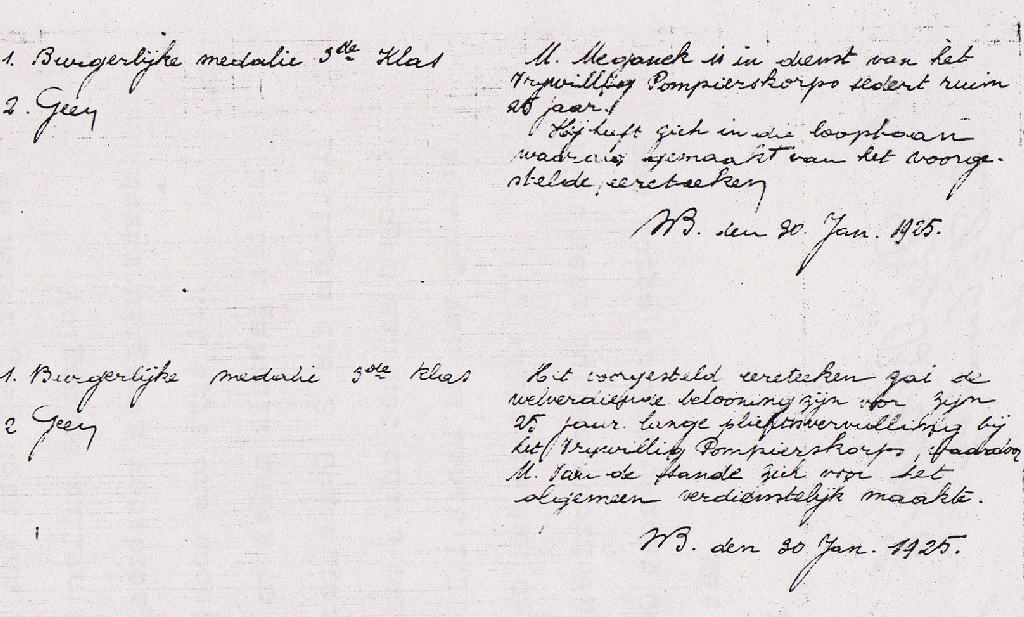 1. Burgerlijke medalie 3de Klas
2. Geen
M. Meganck is in dienst van het
Vrijwillig Pompierskorps sedert ruim
25 jaar.
Hij heeft zich in die loopbaan
waardig gemaakt van het voorge-
stelde eereteeken
WB. den 30. Jan. 1925.
1. Burgerlijke medalie 3de Klas
2 Geen
Hit voorgesteld eereteeken zal de
welverdiende belooning zijn voor zijn
25 jaar lange plichtsvervulling bij
het Vrijwillig Pompierskorps, waardoor
M. Van de zich voor het
algemeen verdienstelijk maakte.
WB. den 30 Jan. 1925.